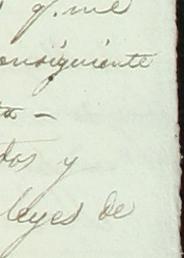 q.me
onsiguiente
ta –
dos y
leyes de